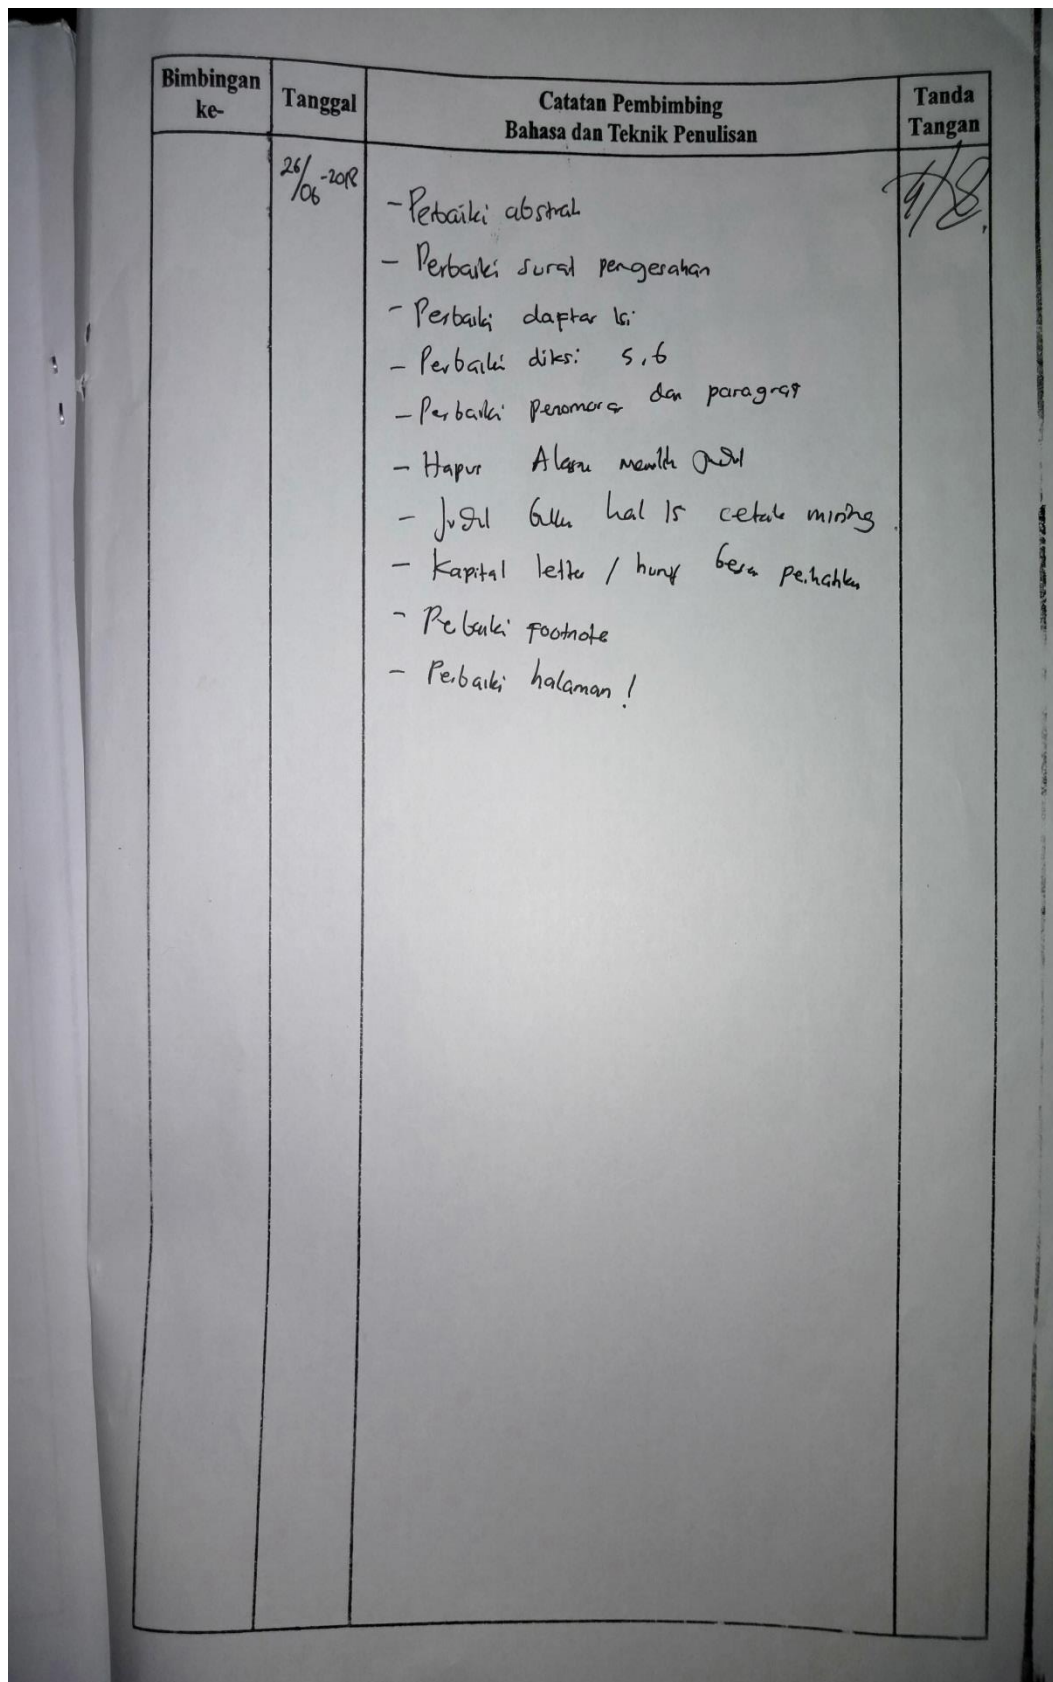 Bimbingan ke-
Tanggal
Catatan Pembimbing
Bahasa dan Teknik Penulisan
Tanda Tangan
26/06-2018
- Perbaiki abstrak
- Perbaiki surat pengesahan
- Perbaiki daftar Isi
- Perbaiki diksi 5,6
- Perbaiki penomoran dan paragraf
- Hapus Alasan memilih Judul
- Judul buku hal 15 cetak miring
- Kapital letter / huruf besar perhatikan
- Perbaiki Footnote
- Perbaiki halaman!